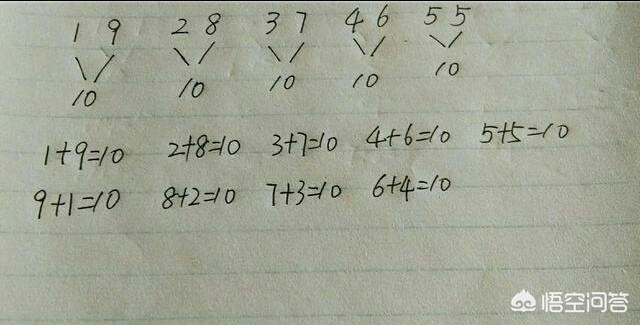 1 9 2 8 3 7 4 6 5 5
10 10 10 10 10
1+9=10 2+8=10 3+7=10 4+6=10 5+5=10
9+1=10 8+2=10 7+3=10 6+4=10
悟空问答